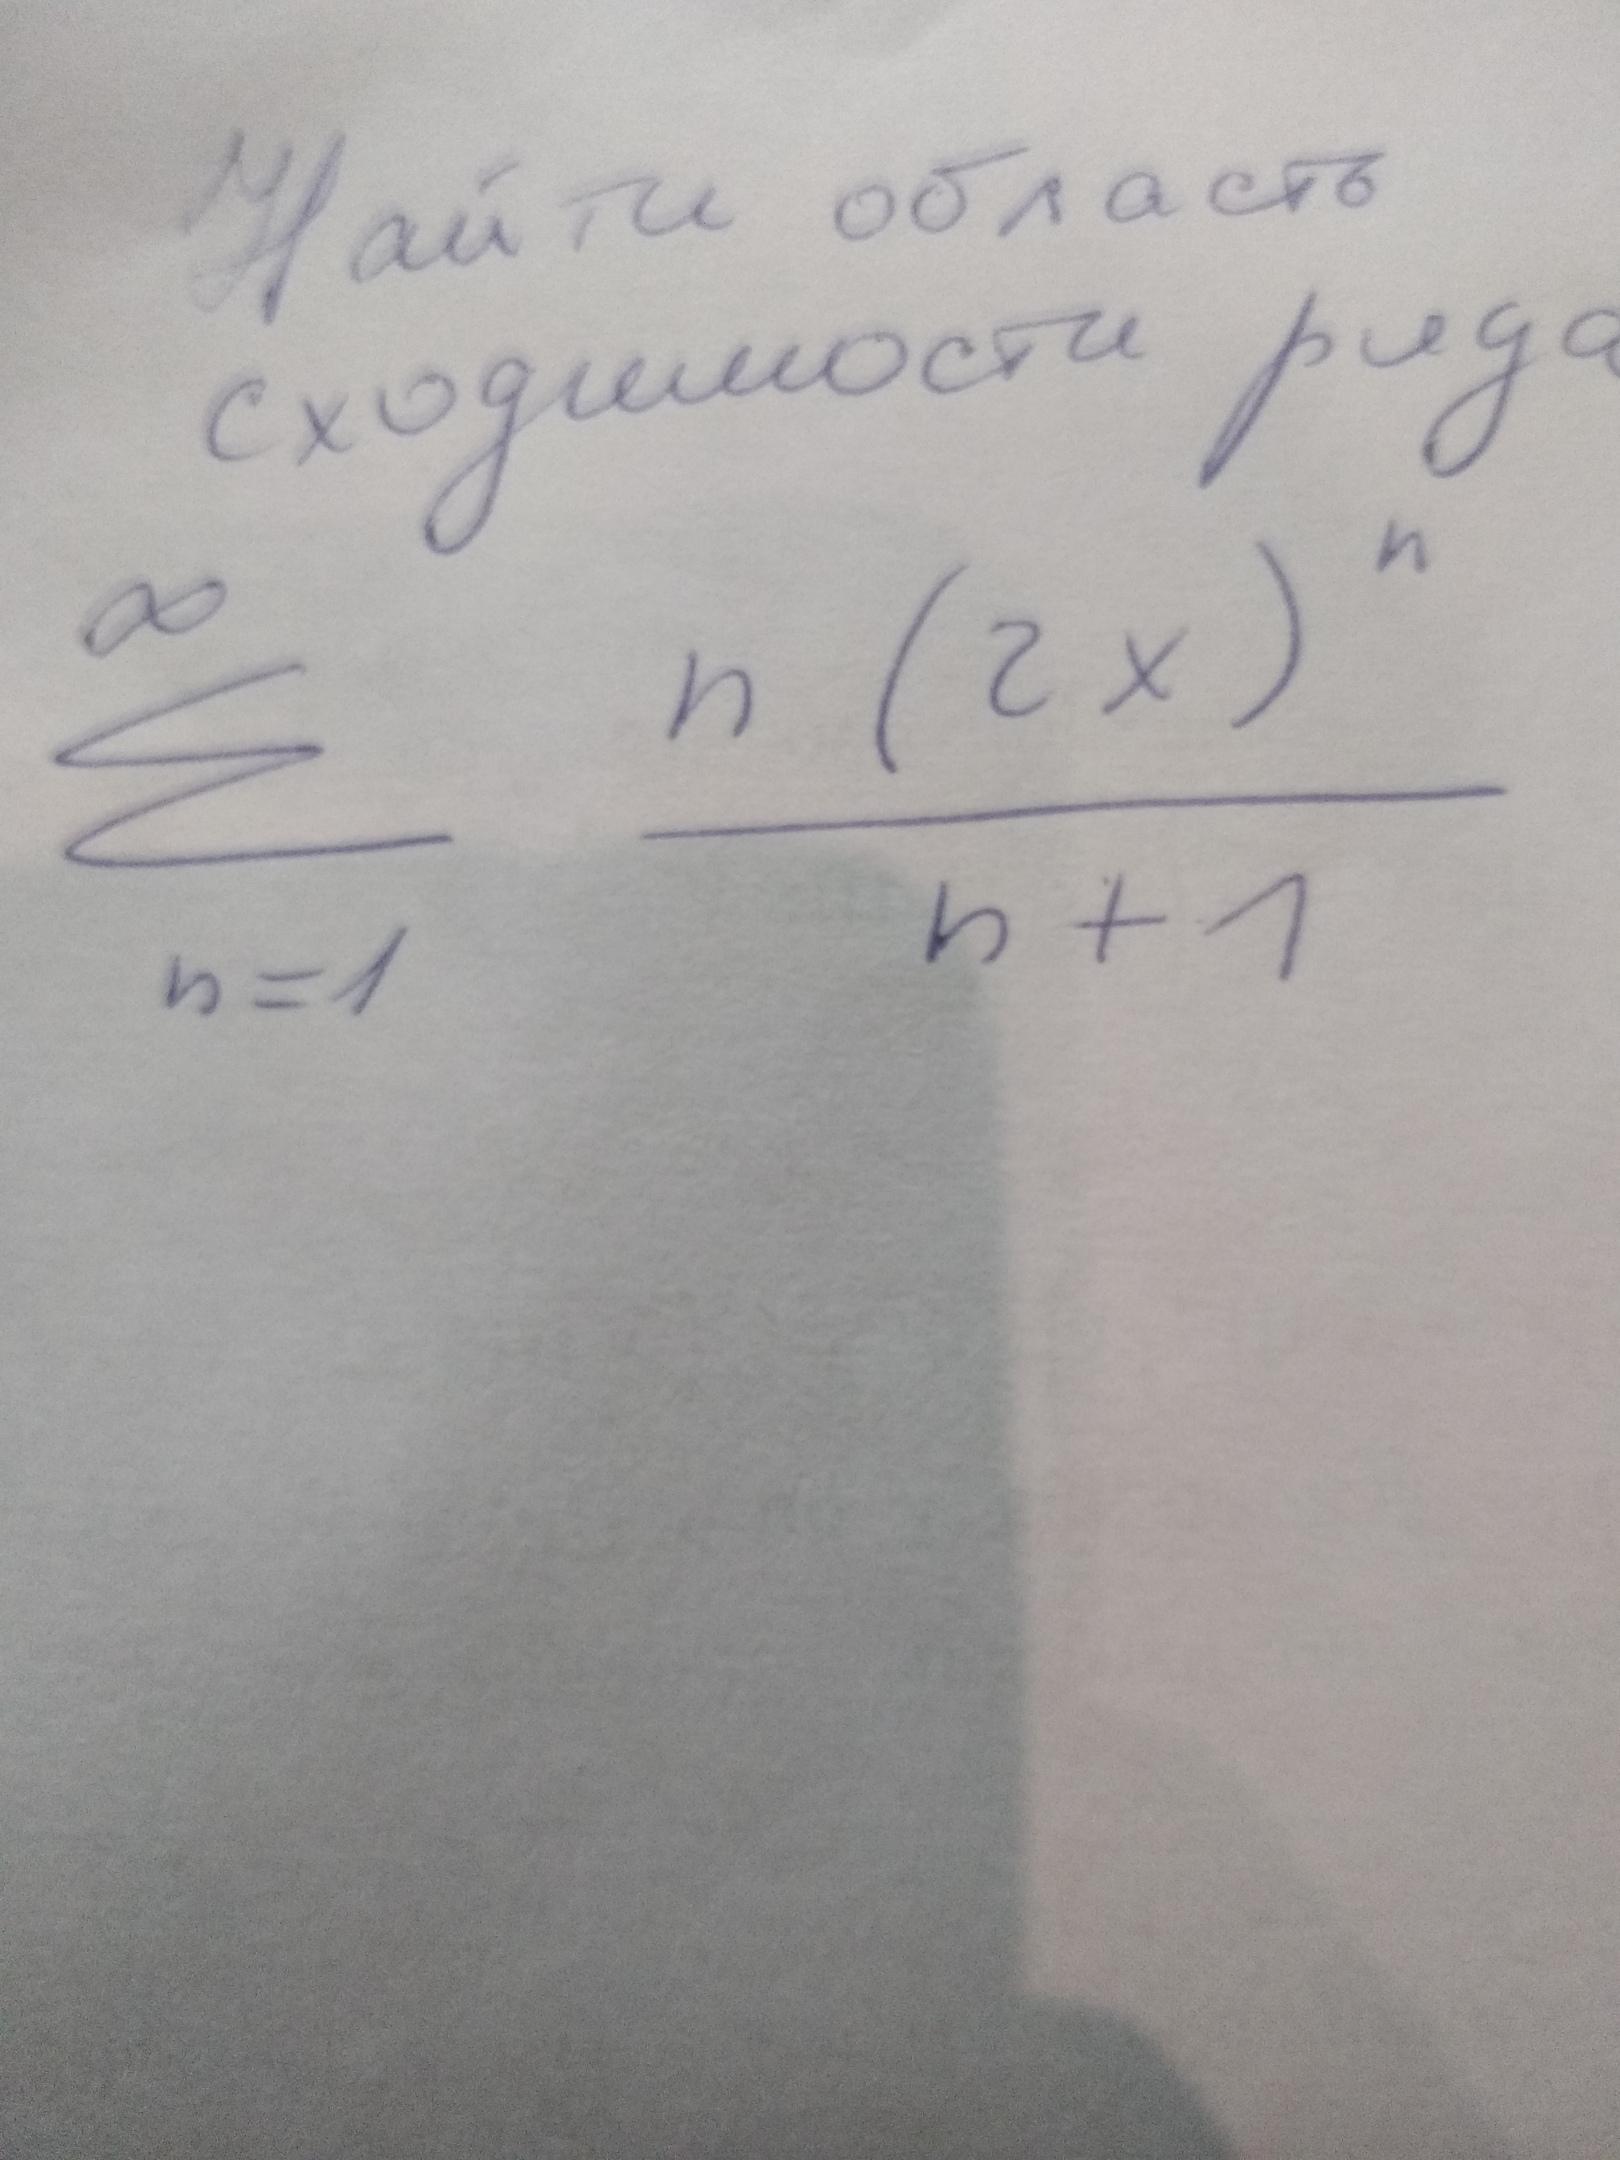 Найти область
сходимости ряда
∞
n (2x)^n
∑
n + 1
n=1